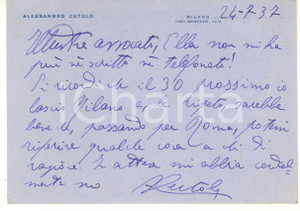 ALESSANDRO CUTOLO
MILANO
24-7-37
Illustre avvocato, Ella non mi ha
più nè scritto nè telefonato!
Si ricordi che il 30 prossimo io
lascio Milano e, le ripeto, sarebbe
bene che, passando per Roma, potessi
riferire qualche cosa a chi di
ragione. In attesa mi abbia cordial-
mente suo
ACutolo